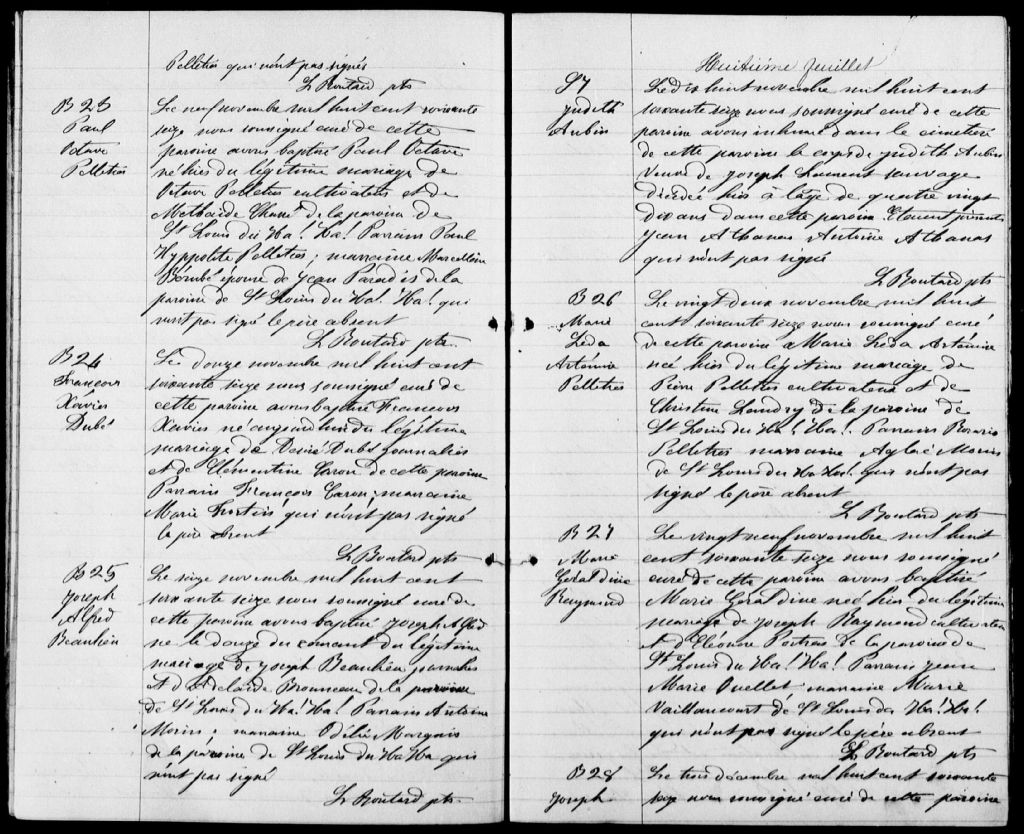 Pelletier qui n'ont pas signés
L Boutard ptr
B 23
Paul
Octave
Pelletier
Le neuf novembre mil huit cent soixante
seize nous soussigné curé de cette
paroisse avons baptisé Paul Octave
né hier du légitime mariage de
Octave Pelletier cultivateur et de
de la paroisse de
St Louis du Ha! Ha! Parrain Paul
Hyppolite Pelletier; marraine Marcelline
Bérubé épouse de Jean Paradis de la
paroisse de St Louis du Ha! Ha! qui
n'ont pas signé le père absent
L Boutard ptr
B 24
François
Xavier
Dubé
Le douze novembre mil huit cent
soixante seize nous soussigné curé de
cette paroisse avons baptisé François
Xavier né aujourd'hui du légitime
mariage de Desiré Dubé journalier
et de Clémentine Caron de cette paroisse
Parrain François Caron marraine
Marie Fortin qui n'ont pas signé
le père absent
L Boutard ptr
B 25
Joseph
Alfred
Beaulieu
Le seize novembre mil huit cent
soixante seize nous soussigné curé de
cette paroisse avons baptisé Joseph Alfred
né le douze du courant du légitime
mariage de Joseph Beaulieu journalier
et d'Adelaide Brouneau de la paroisse
de St Louis du Ha! Ha! Parrain Antoine
Morin; marraine Odélie Marquis
de la paroisse de St Louis du Ha Ha qui
n'ont pas signé
L Boutard ptr
Huitième feuillet
S 7
Judith
Aubin
Le dix huit novembre mil huit cent
soixante seize nous soussigné curé de cette
paroisse avons inhumé dans le cimetière
de cette paroisse le corps de Judith Aubin
veuve de Joseph Laurent sauvage
décédée hier à l'âge de quatre vingt
dix ans dans cette paroisse Etaient présents
Jean Athanas Antoine Athanas
qui n'ont pas signé
L Boutard ptr
B 26
Marie
Leda
Artémise
Pelletier
Le vingt deux novembre mil huit
cent soixante seize nous soussigné curé
de cette paroisse Marie Leda Artémise
née hier du légitime mariage de
Pierre Pelletier cultivateur et de
Christine Landry de la paroisse de
St Louis du Ha! Ha!. Parrain Rosario
Pelletier marraine Aglaé Morin
de St Louis du Ha Ha! qui n'ont pas
signé le père absent
L Boutard ptr
B 27
Marie
Géraldine
Raymond
Le vingt neuf novembre mil huit
cent soixante seize nous soussigné
curé de cette paroisse avons baptisé
Marie Géraldine née hier du légitime
mariage de Joseph Raymond cultivateur
et d'Eléonore Poitras de la paroisse de
St Louis du Ha! Ha! Parrain
Marie Ouellet marraine Marie
Vaillancourt de St Louis du Ha! Ha!
qui n'ont pas signé le père absent
L Boutard ptr
B 28
Joseph
Le trois décembre mil huit cent soixante
seize nous soussigné curé de cette paroisse